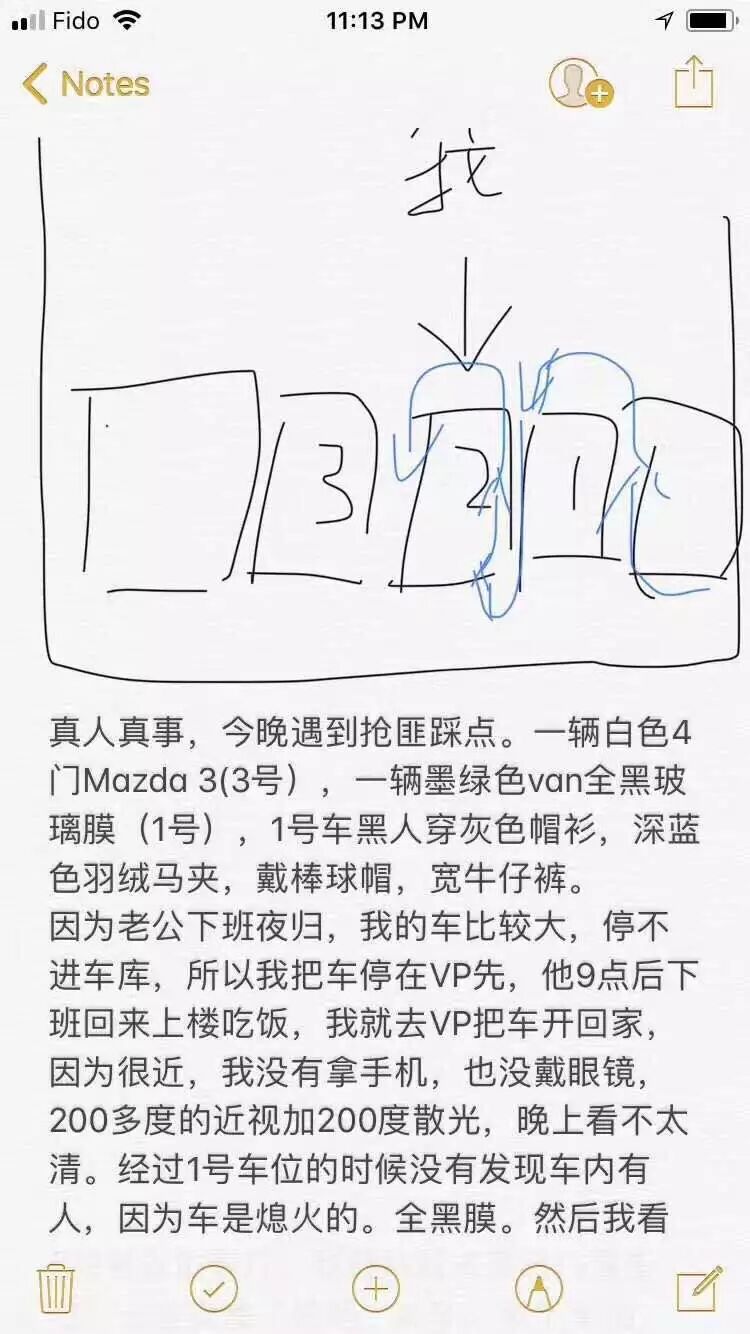 Fido
11:13 PM
Notes
我
3
2
1
真人真事，今晚遇到抢匪踩点。一辆白色4
门Mazda 3(3号），一辆墨绿色van全黑玻
璃膜（1号），1号车黑人穿灰色帽衫，深蓝
色羽绒马夹，戴棒球帽，宽牛仔裤。
因为老公下班夜归，我的车比较大，停不
进车库，所以我把车停在VP先，他9点后下
班回来上楼吃饭，我就去VP把车开回家，
因为很近，我没有拿手机，也没戴眼镜，
200多度的近视加200度散光，晚上看不太
清。经过1号车位的时候没有发现车内有
人，因为车是熄火的。全黑膜。然后我看